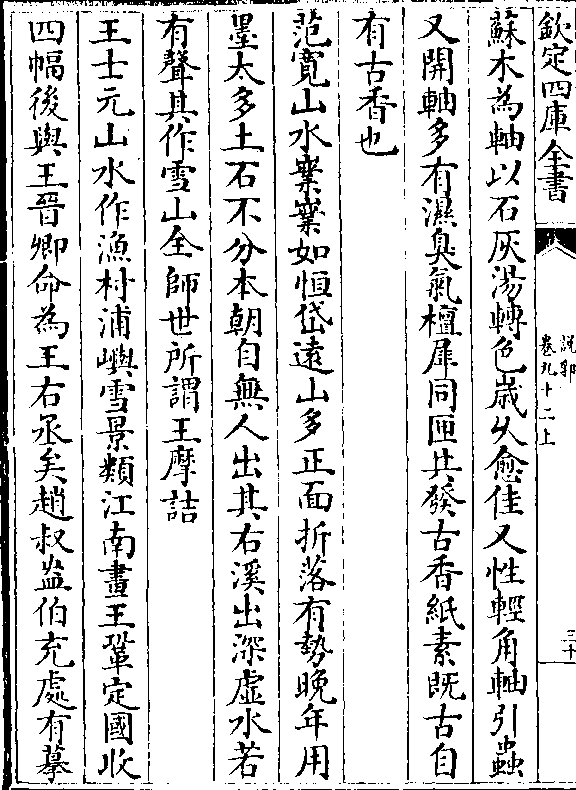 欽定四庫全書
說郛
卷九十二上
三十
蘇木為軸以石灰湯轉色嵗乆愈佳又性輕角軸引蟲
又開軸多有濕臭氣檀犀同匣共發古香紙素既古自
有古香也
范寛山水叢叢如恒岱逺山多正面折落有勢晩年用
墨太多土石不分本朝自無人出其右溪出深虚水若
有聲其作雪山全師世所謂王摩詰
王士元山水作漁村浦嶼雪景類江南畫王鞏定國收
四幅後與王晉卿命為王右丞矣趙叔盎伯充處有摹